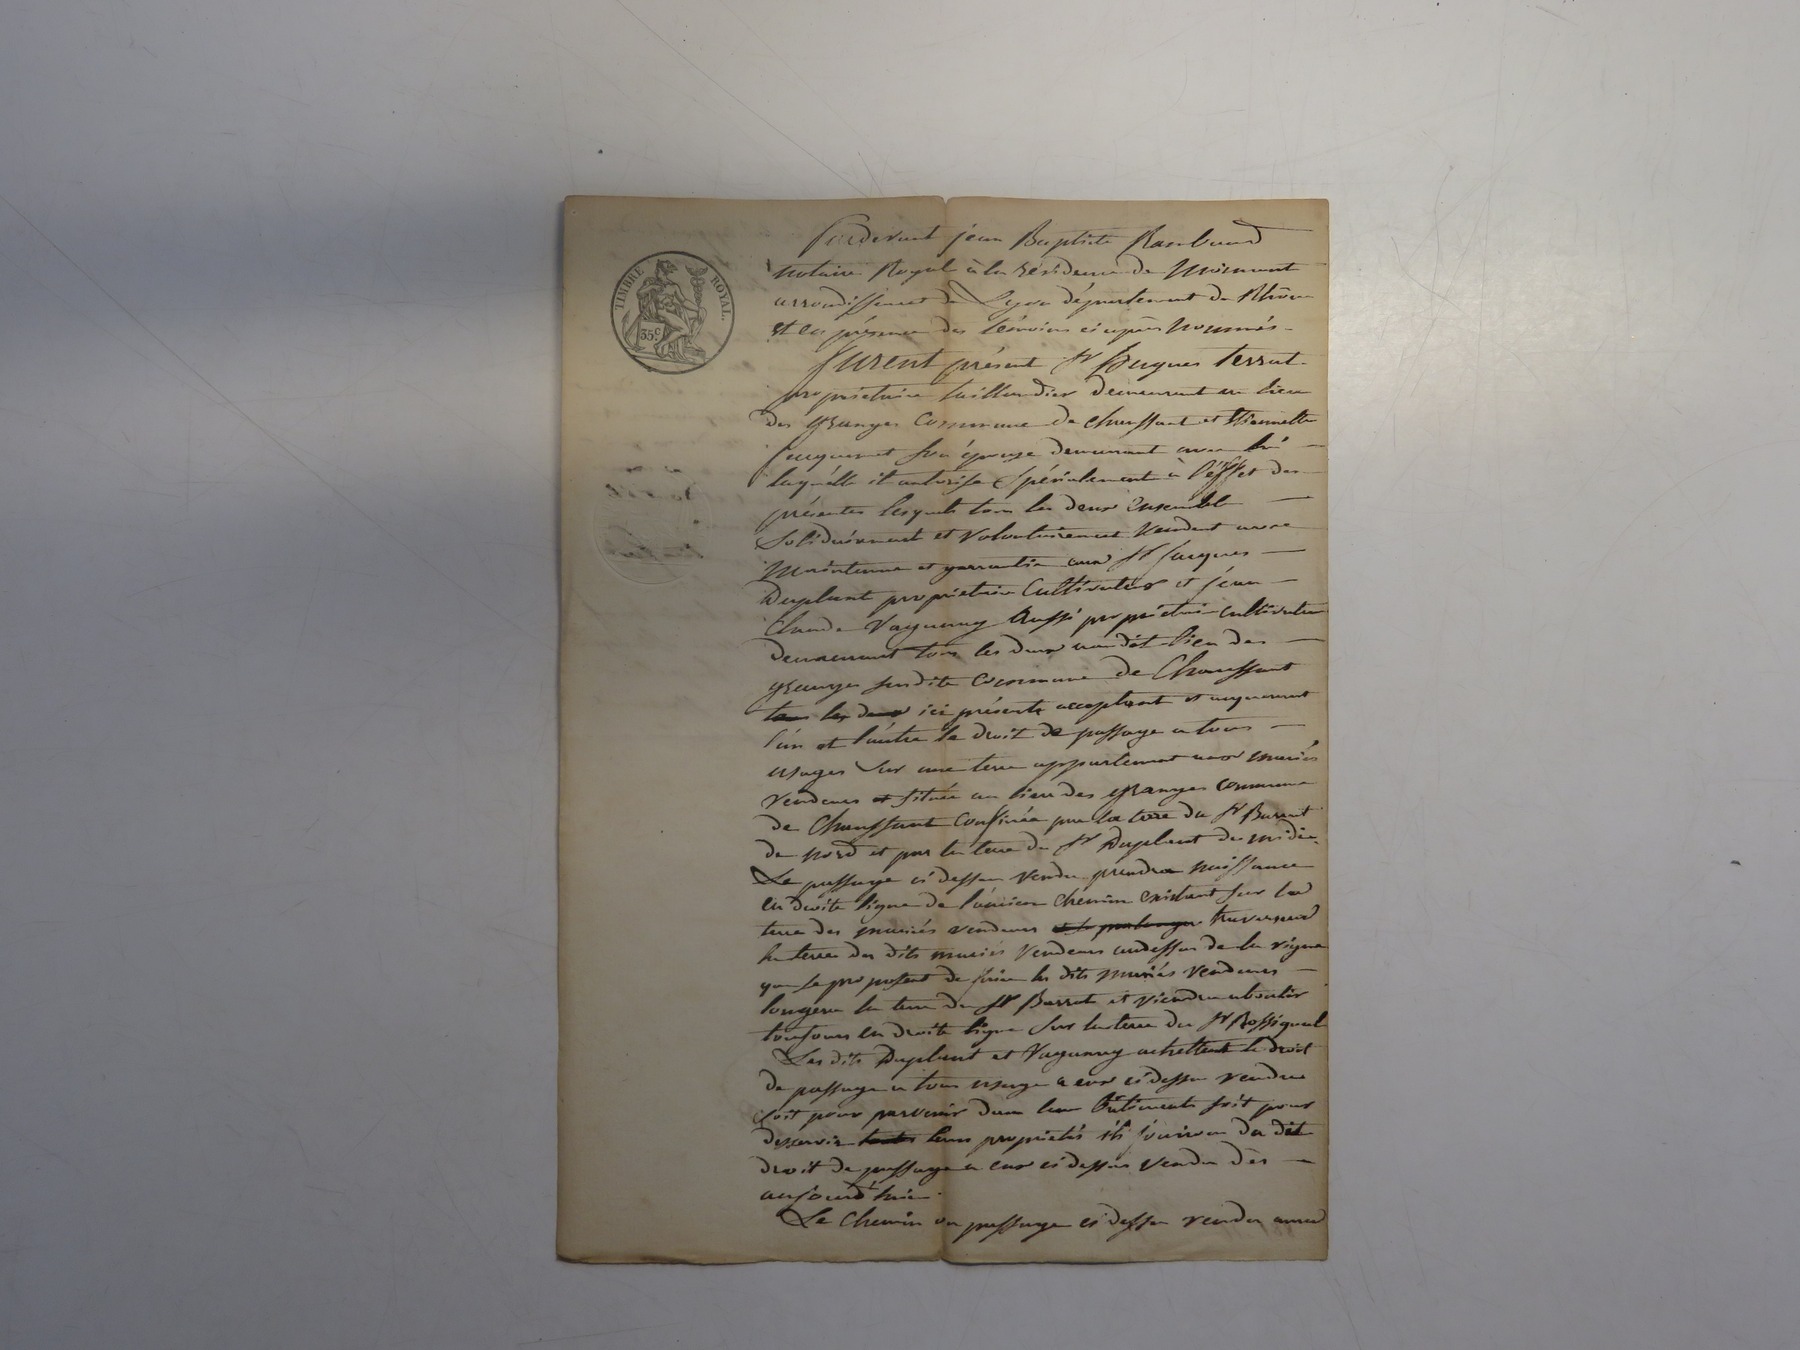 TIMBRE ROYAL.
35 c.
Pardevant jean Baptiste Rambaud
notaire Royal à la résidence de Mornant
arrondissement de Lyon département du Rhône
et en présence des témoins ci après nommés
furent présent Sr hugues terrat
propriétaire taillandier demeurant au lieu
des granges commune de chaussant et
son épouse demeurant avec lui
laquelle il autorise spécialement à l'éffet des
présentes lesquels tous les deux ensemble
Solidairement et volontairement vendent avec
maintenue et garrantie aux Sr jacques
Duplant propriétaire Cultivateur et jean
Claude Vaganay Aussi propriétaire cultivateur
demeurant tous les deux au dit lieu des
granges susdite commune de Chaussant
tous les deux ici présents acceptant et acquerant
l'un et l'autre le droit de passage a tous
usages Sur une terre appartenant aux mariés
vendeurs et située au lieu des granges commune
de Chaussant confinée par la terre du Sr
de nord et par la terre du Sr Duplant du midi
Le passage ci dessus vendu prendra naissance
en droite ligne de l'ancien chemin existant sur la
terre des mariés vendeurs et se prolonger traversera
la terre des dits mariés vendeurs audessus de la vigne
que se proposent de faire les dits mariés vendeurs
longera la terre du Sr et viendra aboutir
toujours en droite ligne sur la terre du Sr Rossignol
Les dits Duplant et Vaganay achettent le droit
de passage a tous usage a eux ci dessus vendu
soit pour parvenir dans leur Bâtiments soit pour
desservir toutes leurs propriétés ils jouiron du dit
droit de passage a eux ci dessus vendu dès
aujourd'huin
Le Chemin ou passage ci dessus vendu aura